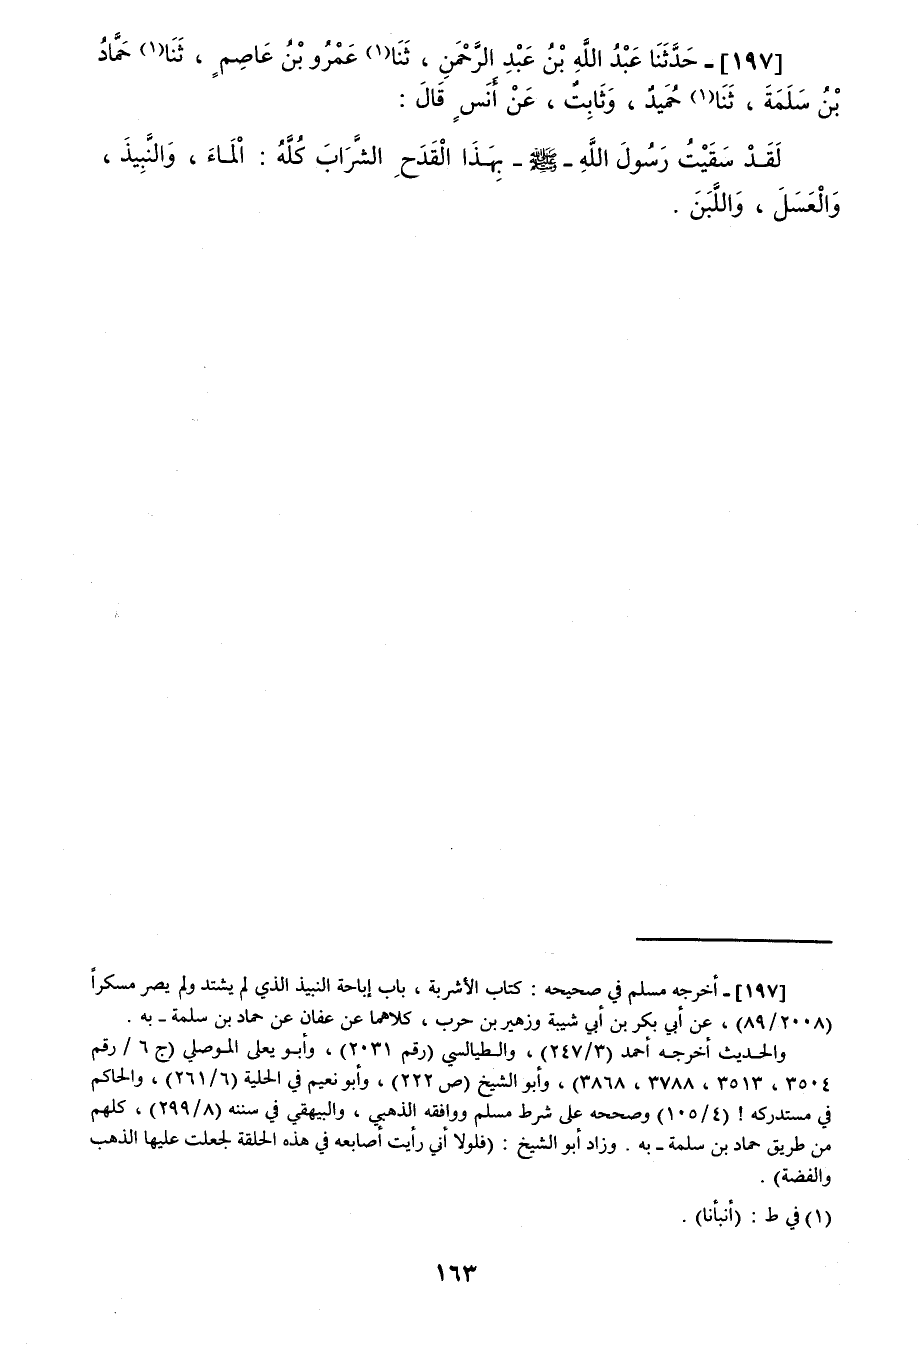 [١٩٧] ـ حَدَّثَنَا عَبْدُ اللَّهِ بْنُ عَبْدِ الرَّحْمَنِ ، ثَنَا(١) عَمْرُو بْنُ عَاصِمٍ ، ثَنَا(١) حَمَّادُ
بْنُ سَلَمَةَ ، ثَنَا(١) حُمَيدٌ ، وَثَابِتٌ ، عَنْ أَنَسٍ قَالَ :
لَقَدْ سَقَيْتُ رَسُولَ اللَّهِ ـ ﷺ ـ بِهَذَا الْقَدَحِ الشَّرَابَ كُلَّهُ : الْمَاءَ ، وَالنَّبِيذَ ،
وَالْعَسَلَ ، وَاللَّبَنَ .
[١٩٧] ـ أخرجه مسلم في صحيحه : كتاب الأشربة ، باب إباحة النبيذ الذي لم يشتد ولم يصر مسكراً
(٨٩/٢٠٠٨) ، عن أبي بكر بن أبي شيبة وزهير بن حرب ، كلاهما عن عفان عن حماد بن سلمة ـ به .
والحديث أخرجه أحمد (٢٤٧/٣) ، والطيالسي (رقم ٢٠٣١) ، وأبو يعلى الموصلي (ج ٦ / رقم
٣٥٠٤ ، ٣٥١٣ ، ٣٧٨٨ ، ٣٨٦٨) ، وأبو الشيخ (ص ٢٢٢) ، وأبو نعيم في الحلية (٢٦١/٦) ، والحاكم
في مستدركه ! (١٠٥/٤) وصححه على شرط مسلم ووافقه الذهبي ، والبيهقي في سننه (٢٩٩/٨) ، كلهم
من طريق حماد بن سلمة ـ به . وزاد أبو الشيخ : (فلولا أني رأيت أصابعه في هذه الحلقة لجعلت عليها الذهب
والفضة) .
(١) في ط : (أنبأنا) .
١٦٣